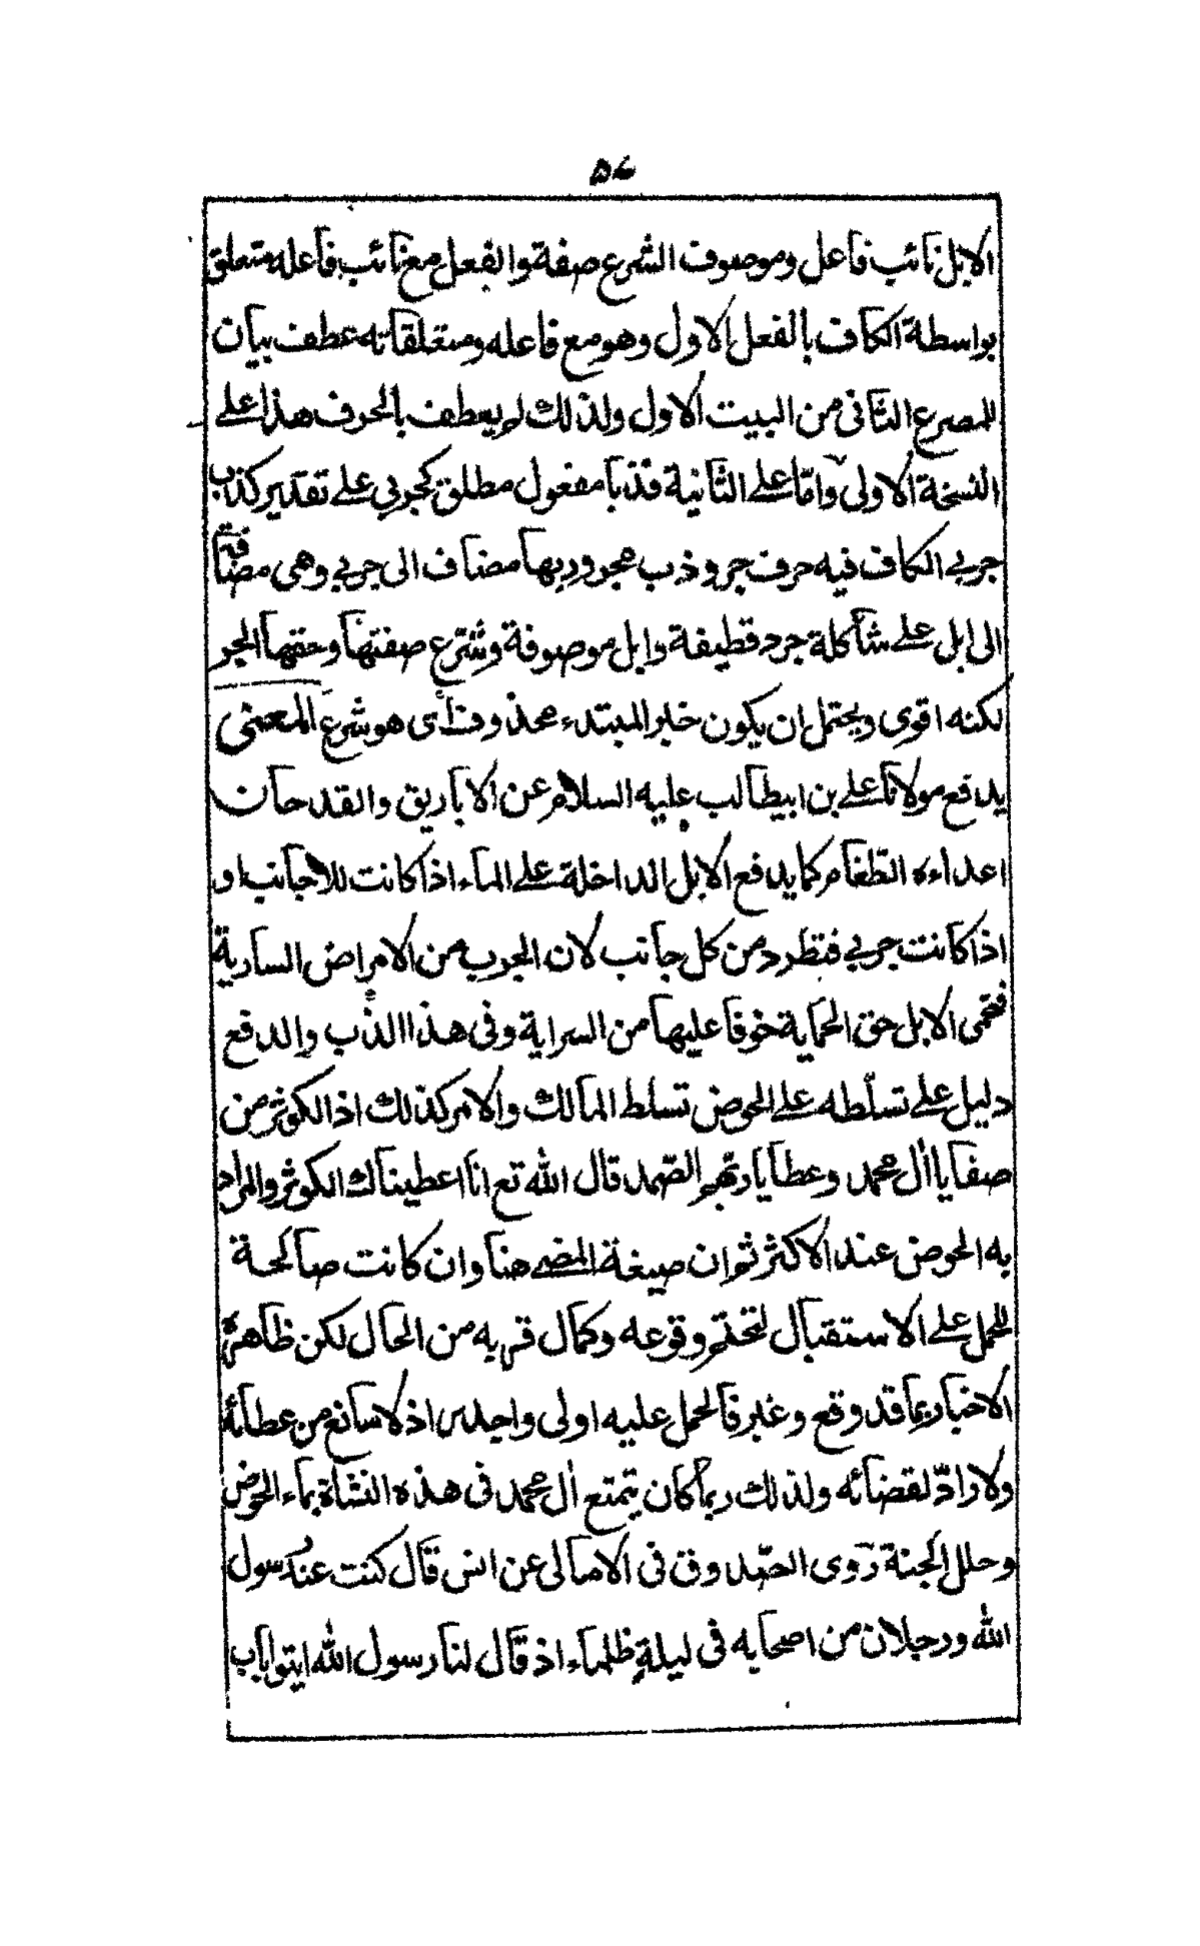 ۵۷
الابل نائب فاعل وموصوف الشرع صفة والفعل مع نائب فاعله متعلق
بواسطة الكاف بالفعل الاول وهو مع فاعله ومتعلقاته عطف بيان
للمصرع الثانى من البيت الاول ولذلك لم يعطف بالحرف هذا على
النسخة الاولى وامّا على الثانية فذبا مفعول مطلق كجربي على تقدير كذب
جربي الكاف فيه حرف جر وذب مجرور بها مضاف الى جربي وهى مضافة
الى ابل على شاكلة جرد قطيفة وابل موصوفة وشرّع صفتها وحقها الجر
لكنه اقوى ويحتمل ان يكون خبر المبتدء محذوف اى هو شرع المعنى
يدفع مولانا على بن ابيطالب عليه السلام عن الاباريق والقدحان
اعداءه الطّغام كما يدفع الابل الداخلة على الماء اذا كانت للاجانب او
اذا كانت جربي فتطرد من كل جانب لان الجرب من الامراض السارية
فتحمى الابل حق الحماية خوفا عليها من السراية وفى هذا الذّب والدفع
دليل على تسلّطه على الحوض تسلط المالك والامر كذلك اذ الكوثر من
صفايا اٰل محمد وعطايا ربّهم الصّمد قال الله تع انا اعطيناك الكوثر والمراد
به الحوض عند الاكثر ثم ان صيغة المضى هنا وان كانت صالحة
للحمل على الاستقبال لتحتم وقوعه وكمال قربه من الحال لكن ظاهرة
الاخبار بما قد وقع وغبر فالحمل عليه اولى واجدر اذ لا مانع من عطائه
ولا رادّ لقضائه ولذلك ربما كان يتمتع اٰل محمد فى هذه النشأة بماء الحوض
وحلل الجنة روى الصّدوق فى الامالى عن انس قال كنت عند رسول
الله ورجلان من اصحابه فى ليلةٍ ظلماء اذ قال لنا رسول الله ايتوا باب